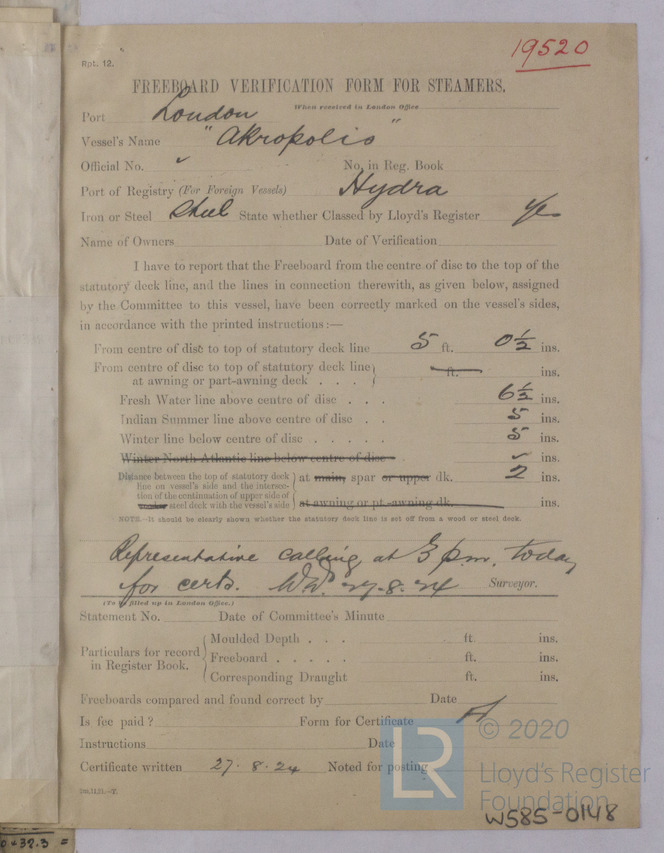 19520
Rpt. 12.
FREEBOARD VERIFICATION FORM FOR STEAMERS.
When received in London Office
Port London
Vessel's Name "Akropolis"
Official No. No. in Reg. Book
Port of Registry (For Foreign Vessels) Hydra
Iron or Steel Steel State whether Classed by Lloyd's Register Yes
Name of Owners Date of Verification
I have to report that the Freeboard from the centre of disc to the top of the
statutory deck line, and the lines in connection therewith, as given below, assigned
by the Committee to this vessel, have been correctly marked on the vessel's sides,
in accordance with the printed instructions:—
From centre of disc to top of statutory deck line 5 ft. 0½ ins.
From centre of disc to top of statutory deck line
at awning or part-awning deck . . . ft. ins.
Fresh Water line above centre of disc . . . 6½ ins.
Indian Summer line above centre of disc . . 5 ins.
Winter line below centre of disc . . . . . 5 ins.
Winter North Atlantic line below centre of disc . ins.
Distance between the top of statutory deck
line on vessel's side and the intersec-
tion of the continuation of upper side of
steel deck with the vessel's side
at main, spar or upper dk. 2 ins.
at awning or pt.-awning dk. ins.
NOTE.—It should be clearly shown whether the statutory deck line is set off from a wood or steel deck.
Representative calling at 3 pm. today
for certs. 27.8.24 Surveyor.
(To be filled up in London Office.)
Statement No. Date of Committee's Minute
Particulars for record
in Register Book.
Moulded Depth . . . ft. ins.
Freeboard . . . . . ft. ins.
Corresponding Draught ft. ins.
Freeboards compared and found correct by Date
Is fee paid? Form for Certificate
Instructions Date
Certificate written 27.8.24 Noted for posting
LR
© 2020
Lloyd's Register
Foundation
W585-0148